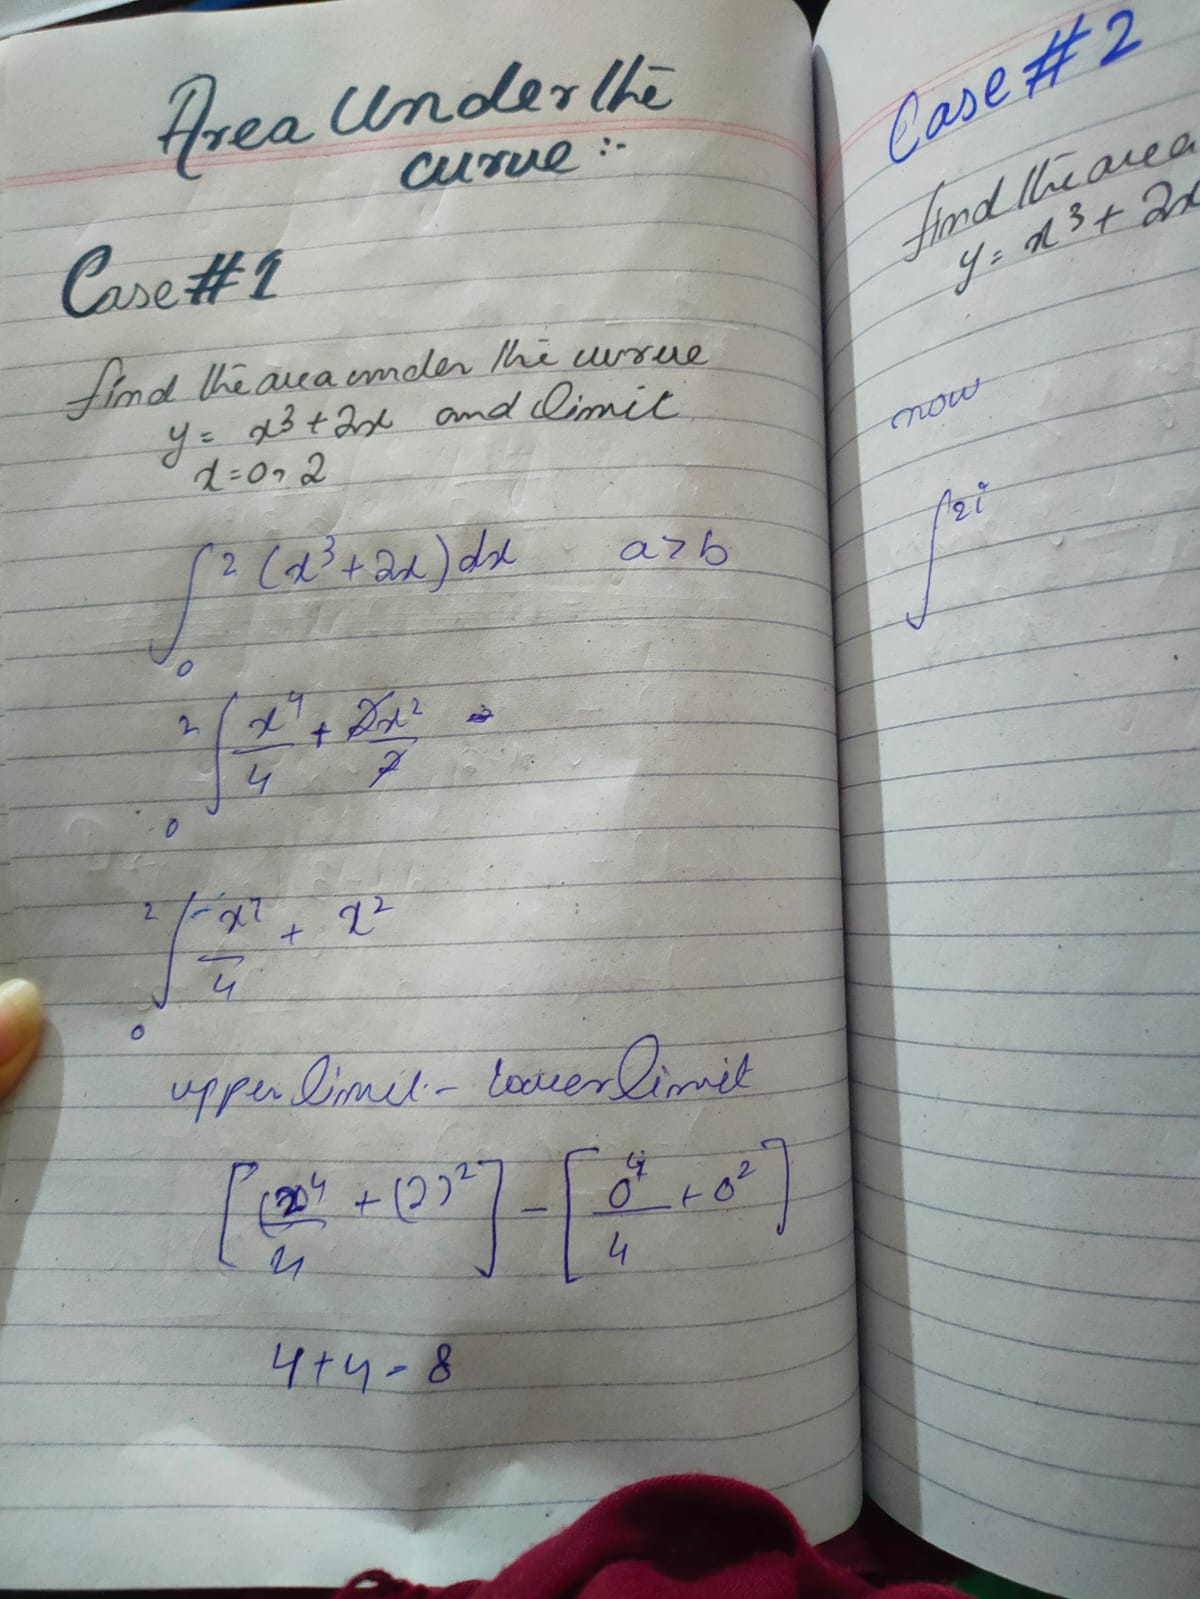 Area Under the
curve :-
Case #1
find the area under the curve
y = x³ + 2x and limit
x = 0, 2
∫ 2 (x³ + 2x) dx a > b
0
2 ∫ x⁴ + 2x²
4 2
0
2 ∫ x⁴ + x²
4
0
upper limit - lower limit
[ (2)⁴ + (2)² ] - [ 0⁴ + 0² ]
4 4
4 + 4 = 8
Case #2
find the area
y = x³ + 2x
now
∫ 2i